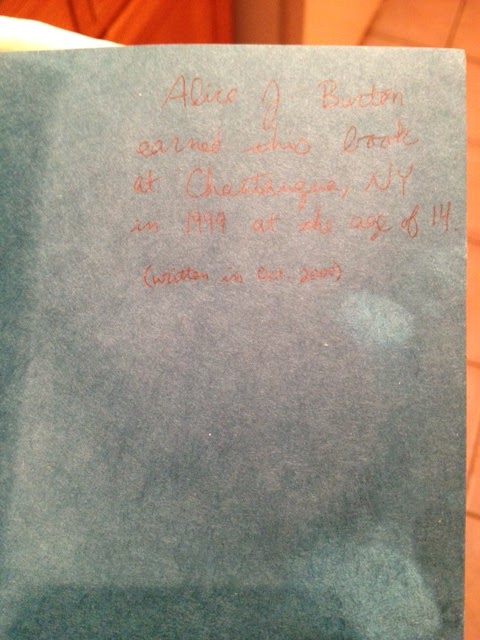 Alice J Burton
earned this book
at Chautauqua, NY
in 1999 at the age of 14.
(written in Oct. 2000)